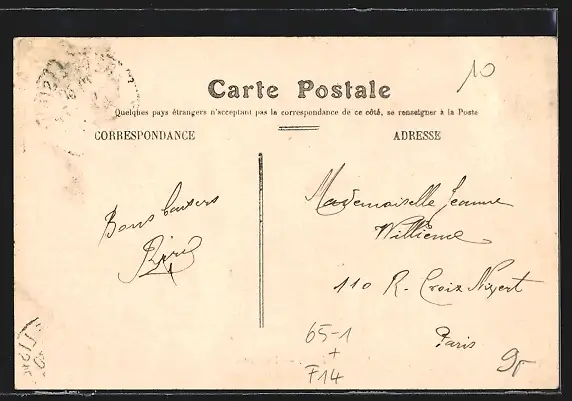 10
Carte Postale
Quelques pays étrangers n'acceptant pas la correspondance de ce côté, se renseigner à la Poste
CORRESPONDANCE
ADRESSE
Bons baisers
Mademoiselle Jeanne
Willième
110 R. Croix Nivert
Paris
65-1
+
F14